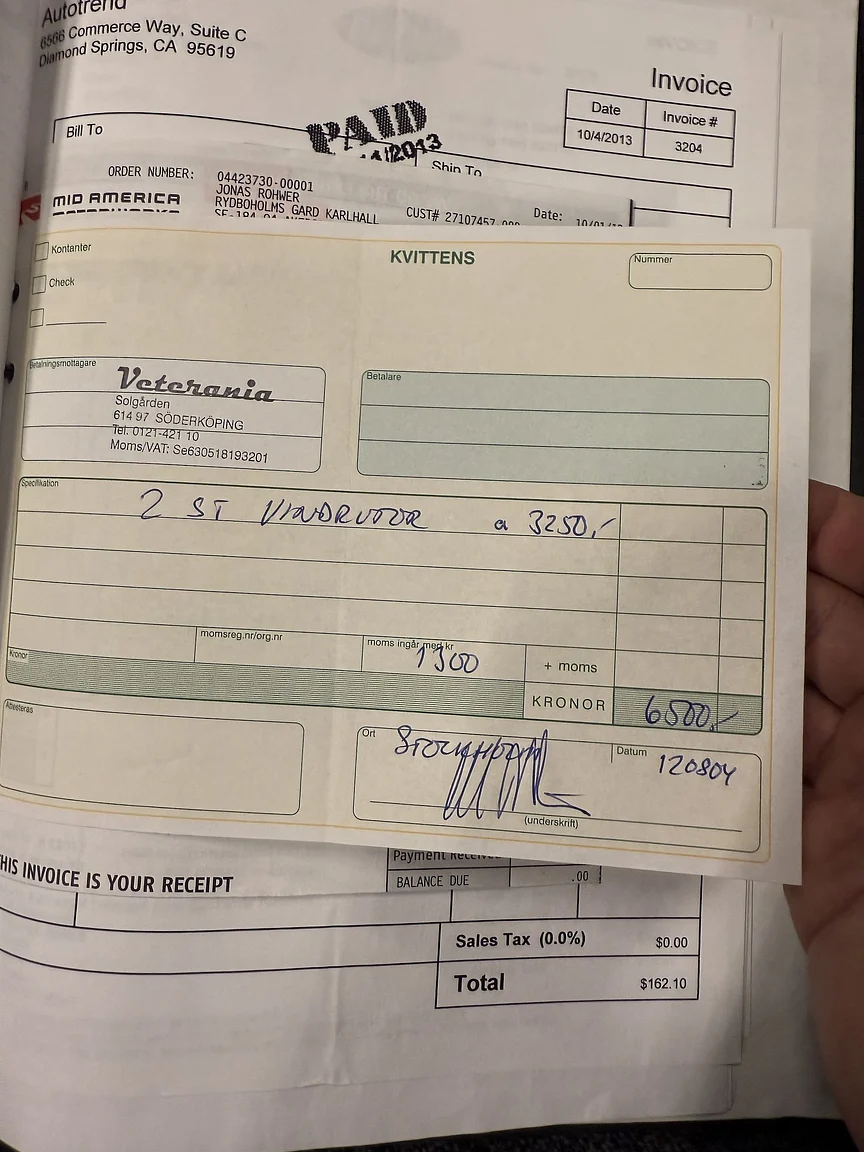 Autotrend
6566 Commerce Way, Suite C
Diamond Springs, CA 95619
Invoice
Date
Invoice #
10/4/2013
3204
PAID
2013
Bill To
Ship To
ORDER NUMBER:
04423730-00001
MID AMERICA
JONAS ROHWER
RYDBOHOLMS GARD KARLHALL
CUST# 27107457
Date:
KVITTENS
Nummer
Kontanter
Check
Betalningsmottagare
Veterania
Solgården
614 97 SÖDERKÖPING
Tel. 0121-421 10
Moms/VAT: Se630518193201
Betalare
Specifikation
2 ST VINDRUTOR a 3250,-
momsreg.nr/org.nr
moms ingår med kr
1300
+ moms
Kronor
KRONOR
6500,-
Attesteras
Ort
STOCKHOLM
Datum
120804
(underskrift)
THIS INVOICE IS YOUR RECEIPT
Payment Receive
BALANCE DUE
.00
Sales Tax (0.0%)
$0.00
Total
$162.10